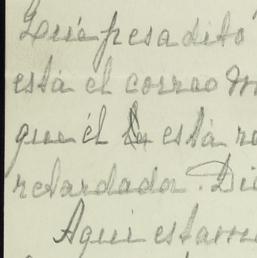 Qué pesadito
está el correo m
que él está re
retardador. Di
Aqui estam